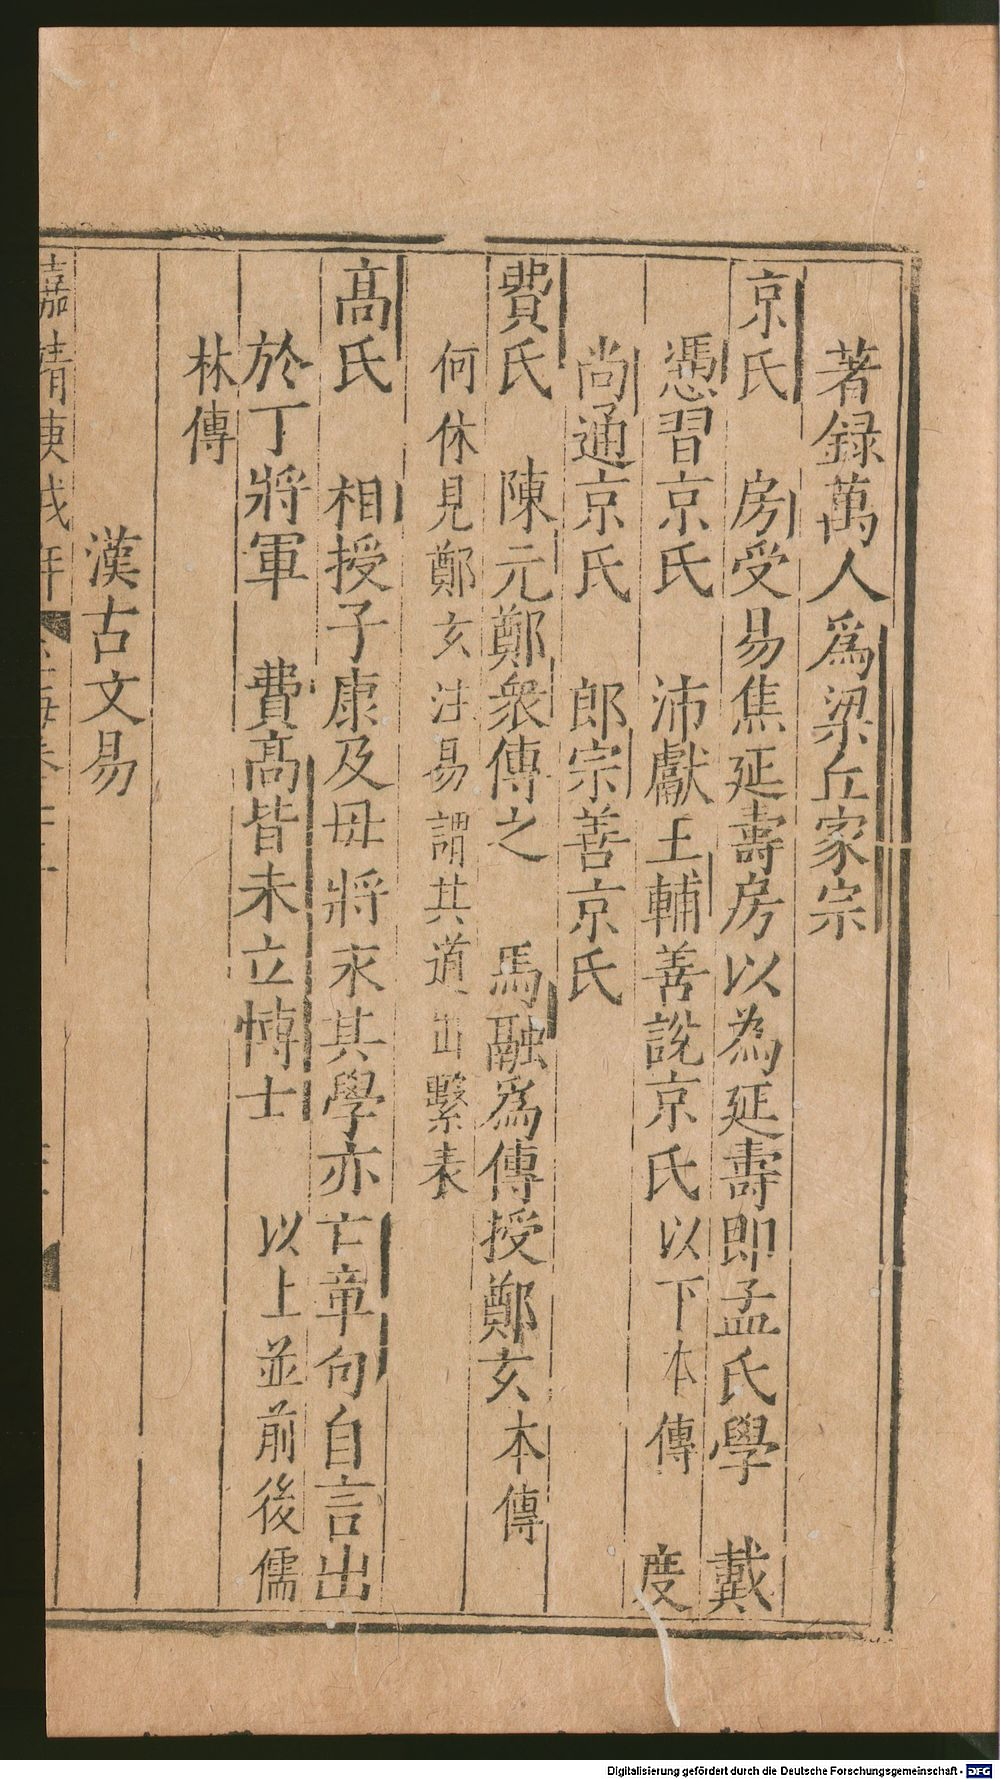 著録萬人爲梁丘家宗
京氏　房受易焦延壽房以為延壽即孟氏學　戴
憑習京氏　沛獻王輔善說京氏以下本傳　度
尚通京氏　郎宗善京氏
費氏　陳元鄭衆傳之　馬融爲傳授鄭玄本傳
何休見鄭玄注易謂其道出繫表
高氏　相授子康及毋將永其學亦亡章句自言出
於丁將軍　費高皆未立博士　以上並前後儒
林傳
漢古文易
嘉靖庚戌年
Digitalisierung gefördert durch die Deutsche Forschungsgemeinschaft - DFG